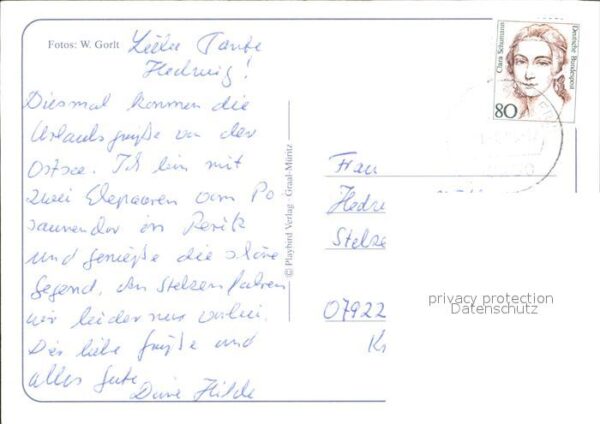 Fotos: W. Gorlt
Liebe Tante
Hedwig!
Diesmal kommen die
Urlaubsgrüße von der
Ostsee. Ich bin mit
zwei Ehepaaren vom Po
saunenchor in Rerik
und genieße die schöne
Gegend. An Stelzen fahren
wir leider nur vorbei.
Dir liebe Grüße und
alles Gute
Deine Hilde
© Playbird Verlag · Graal-Müritz
Clara Schumann
Deutsche Bundespost
80
Frau
Hedw
Stelze
07922
privacy protection
Datenschutz